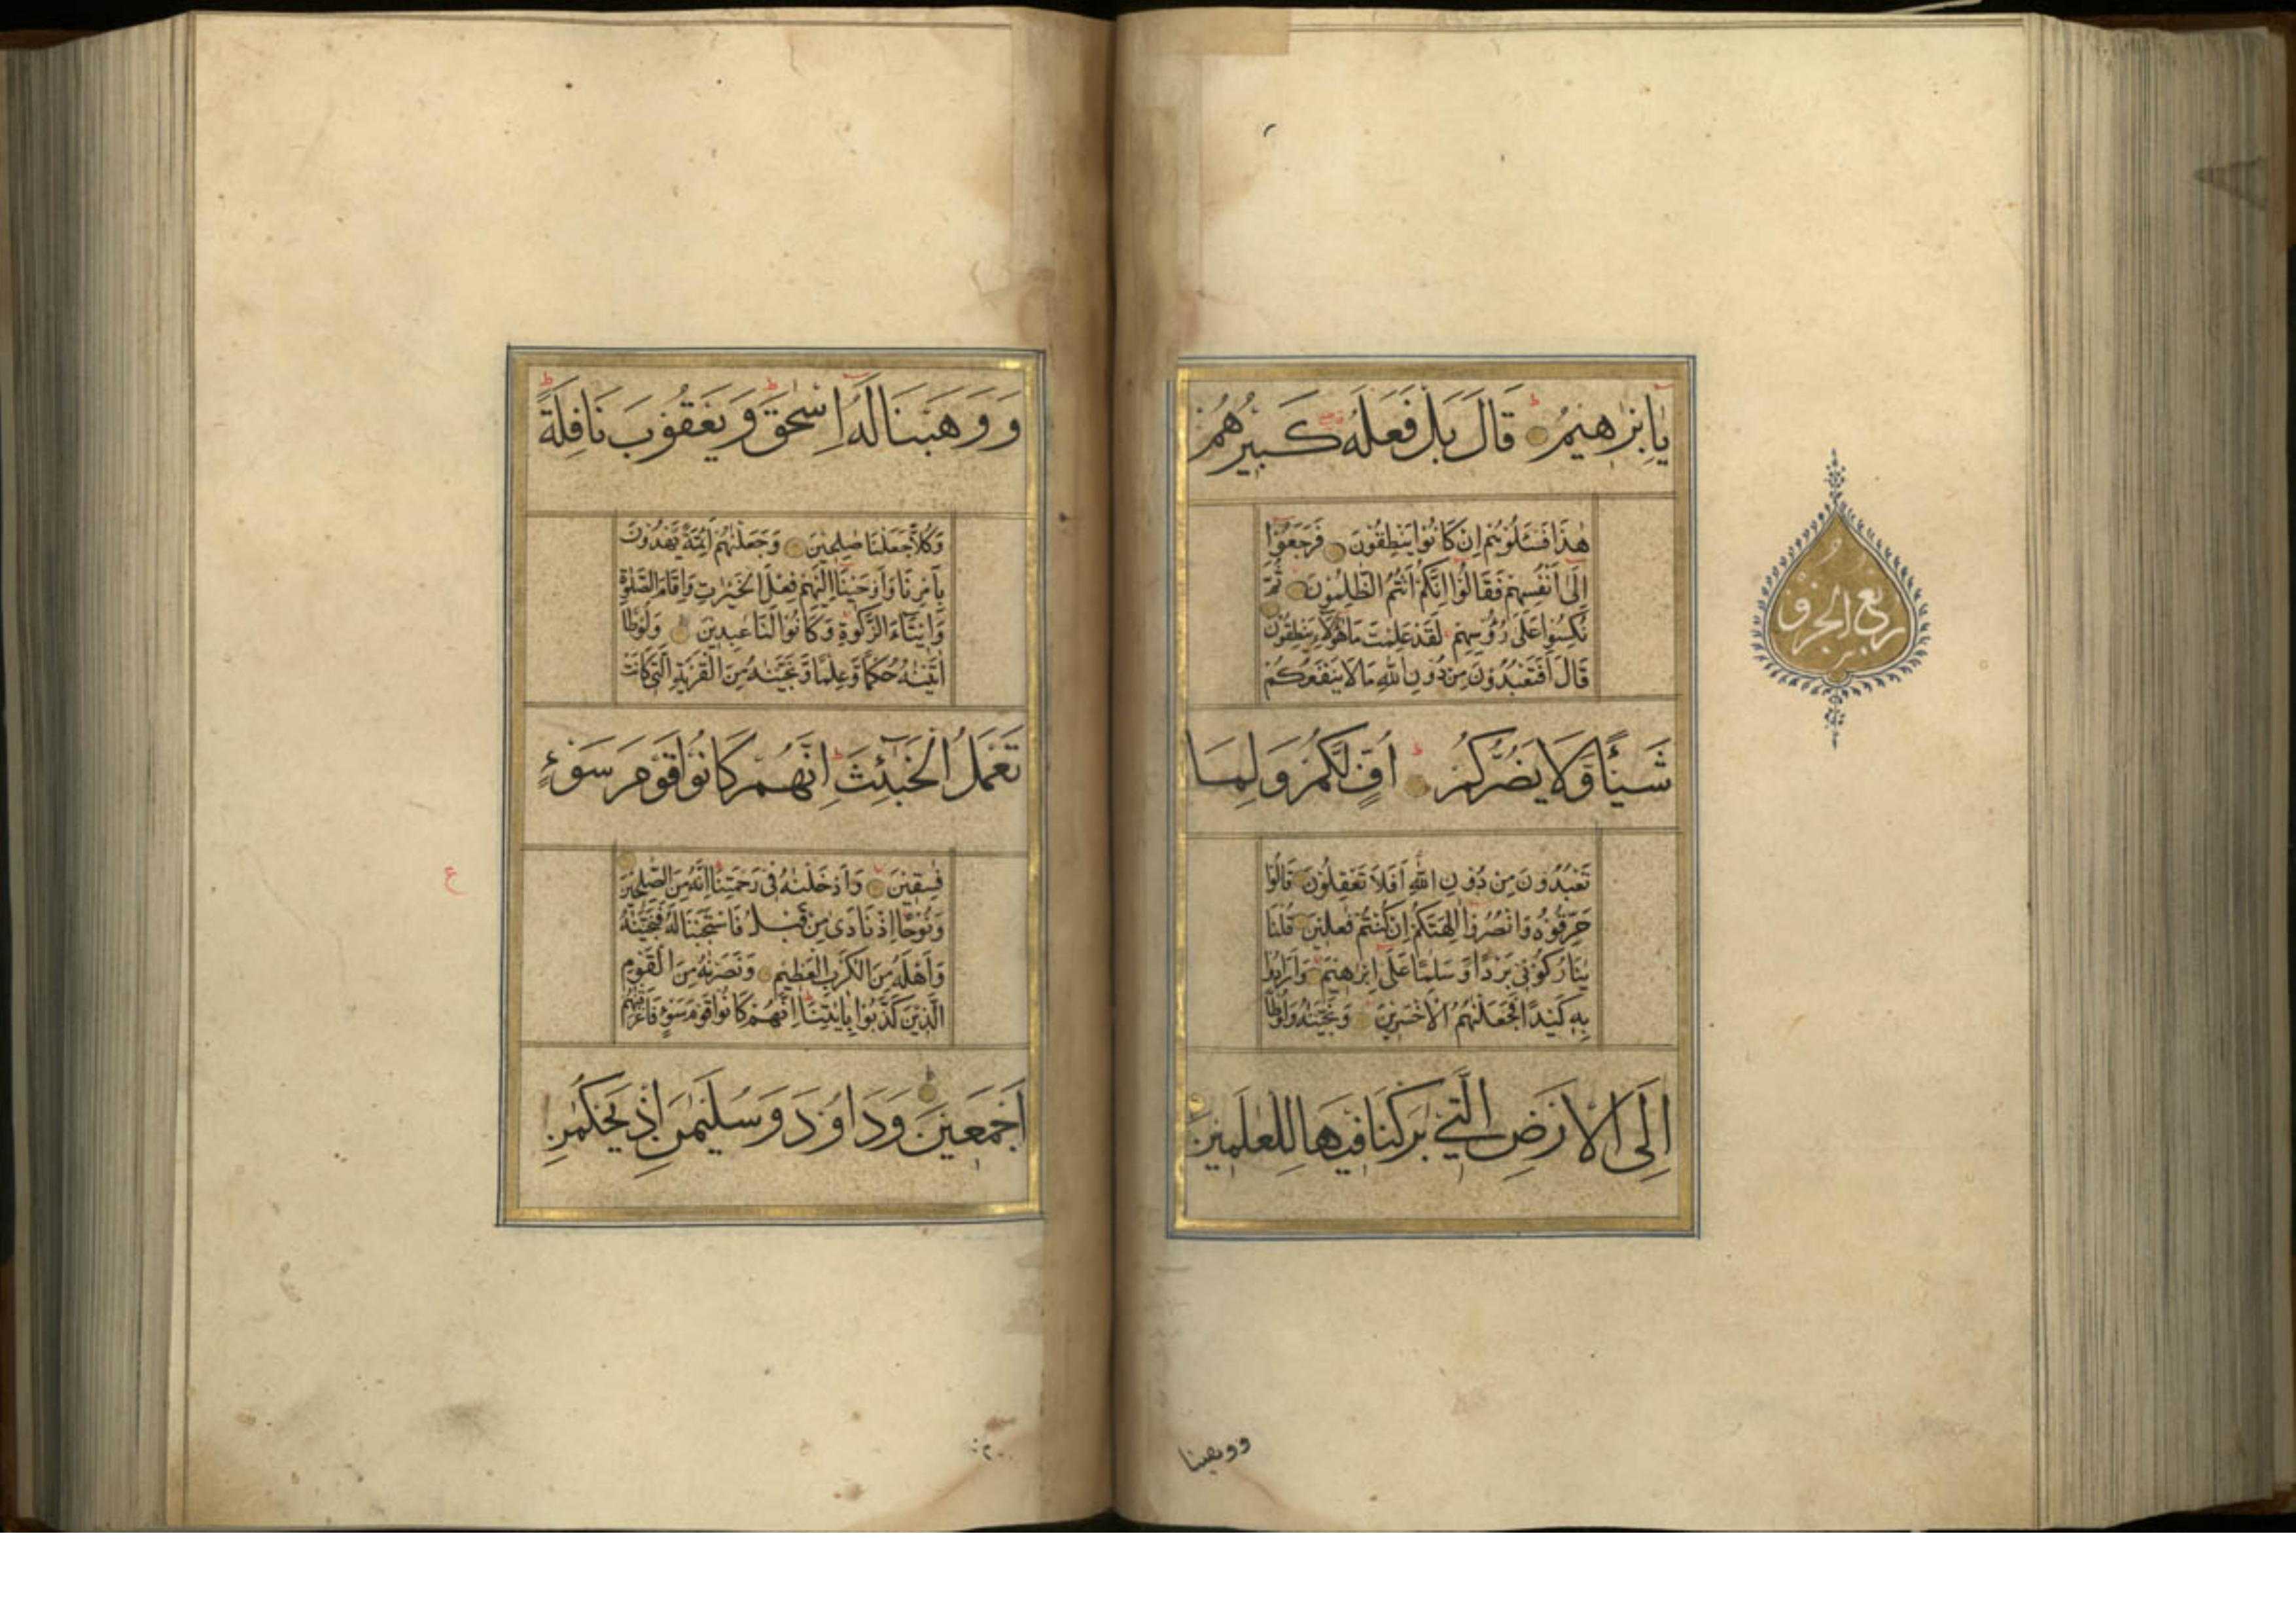 يَا اِبْرٰهِيمُ قَالَ بَلْ فَعَلَهُ كَبِيرُهُمْ
هٰذَا فَسْـَٔلُوهُمْ اِنْ كَانُوا يَنْطِقُونَ فَرَجَعُوا
اِلٰى اَنْفُسِهِمْ فَقَالُوا اِنَّكُمْ اَنْتُمُ الظّٰلِمُونَ ثُمَّ
نُكِسُوا عَلٰى رُؤُسِهِمْ لَقَدْ عَلِمْتَ مَا هٰؤُلَاءِ يَنْطِقُونَ
قَالَ اَفَتَعْبُدُونَ مِنْ دُونِ اللّٰهِ مَا لَا يَنْفَعُكُمْ
شَيْئًا وَلَا يَضُرُّكُمْ اُفٍّ لَكُمْ وَلِمَا
تَعْبُدُونَ مِنْ دُونِ اللّٰهِ اَفَلَا تَعْقِلُونَ قَالُوا
حَرِّقُوهُ وَانْصُرُوا اٰلِهَتَكُمْ اِنْ كُنْتُمْ فٰعِلِينَ قُلْنَا
يٰنَارُ كُونِي بَرْدًا وَسَلٰمًا عَلٰى اِبْرٰهِيمَ وَاَرَادُوا
بِهِ كَيْدًا فَجَعَلْنٰهُمُ الْاَخْسَرِينَ وَنَجَّيْنٰهُ وَلُوطًا
اِلَى الْاَرْضِ الَّتِي بٰرَكْنَا فِيهَا لِلْعٰلَمِينَ
ربع الحزب
ووهبنا
وَوَهَبْنَا لَهُ اِسْحٰقَ وَيَعْقُوبَ نَافِلَةً
وَكُلًّا جَعَلْنَا صٰلِحِينَ وَجَعَلْنٰهُمْ اَئِمَّةً يَهْدُونَ
بِاَمْرِنَا وَاَوْحَيْنَا اِلَيْهِمْ فِعْلَ الْخَيْرٰتِ وَاِقَامَ الصَّلٰوةِ
وَاِيتَاءَ الزَّكٰوةِ وَكَانُوا لَنَا عٰبِدِينَ وَلُوطًا
اٰتَيْنٰهُ حُكْمًا وَعِلْمًا وَنَجَّيْنٰهُ مِنَ الْقَرْيَةِ الَّتِي كَانَتْ
تَعْمَلُ الْخَبٰئِثَ اِنَّهُمْ كَانُوا قَوْمَ سَوْءٍ
فٰسِقِينَ وَاَدْخَلْنٰهُ فِي رَحْمَتِنَا اِنَّهُ مِنَ الصّٰلِحِينَ
وَنُوحًا اِذْ نَادٰى مِنْ قَبْلُ فَاسْتَجَبْنَا لَهُ فَنَجَّيْنٰهُ
وَاَهْلَهُ مِنَ الْكَرْبِ الْعَظِيمِ وَنَصَرْنٰهُ مِنَ الْقَوْمِ
الَّذِينَ كَذَّبُوا بِاٰيٰتِنَا اِنَّهُمْ كَانُوا قَوْمَ سَوْءٍ فَاَغْرَقْنٰهُمْ
اَجْمَعِينَ وَدَاوُدَ وَسُلَيْمٰنَ اِذْ يَحْكُمٰنِ
ع